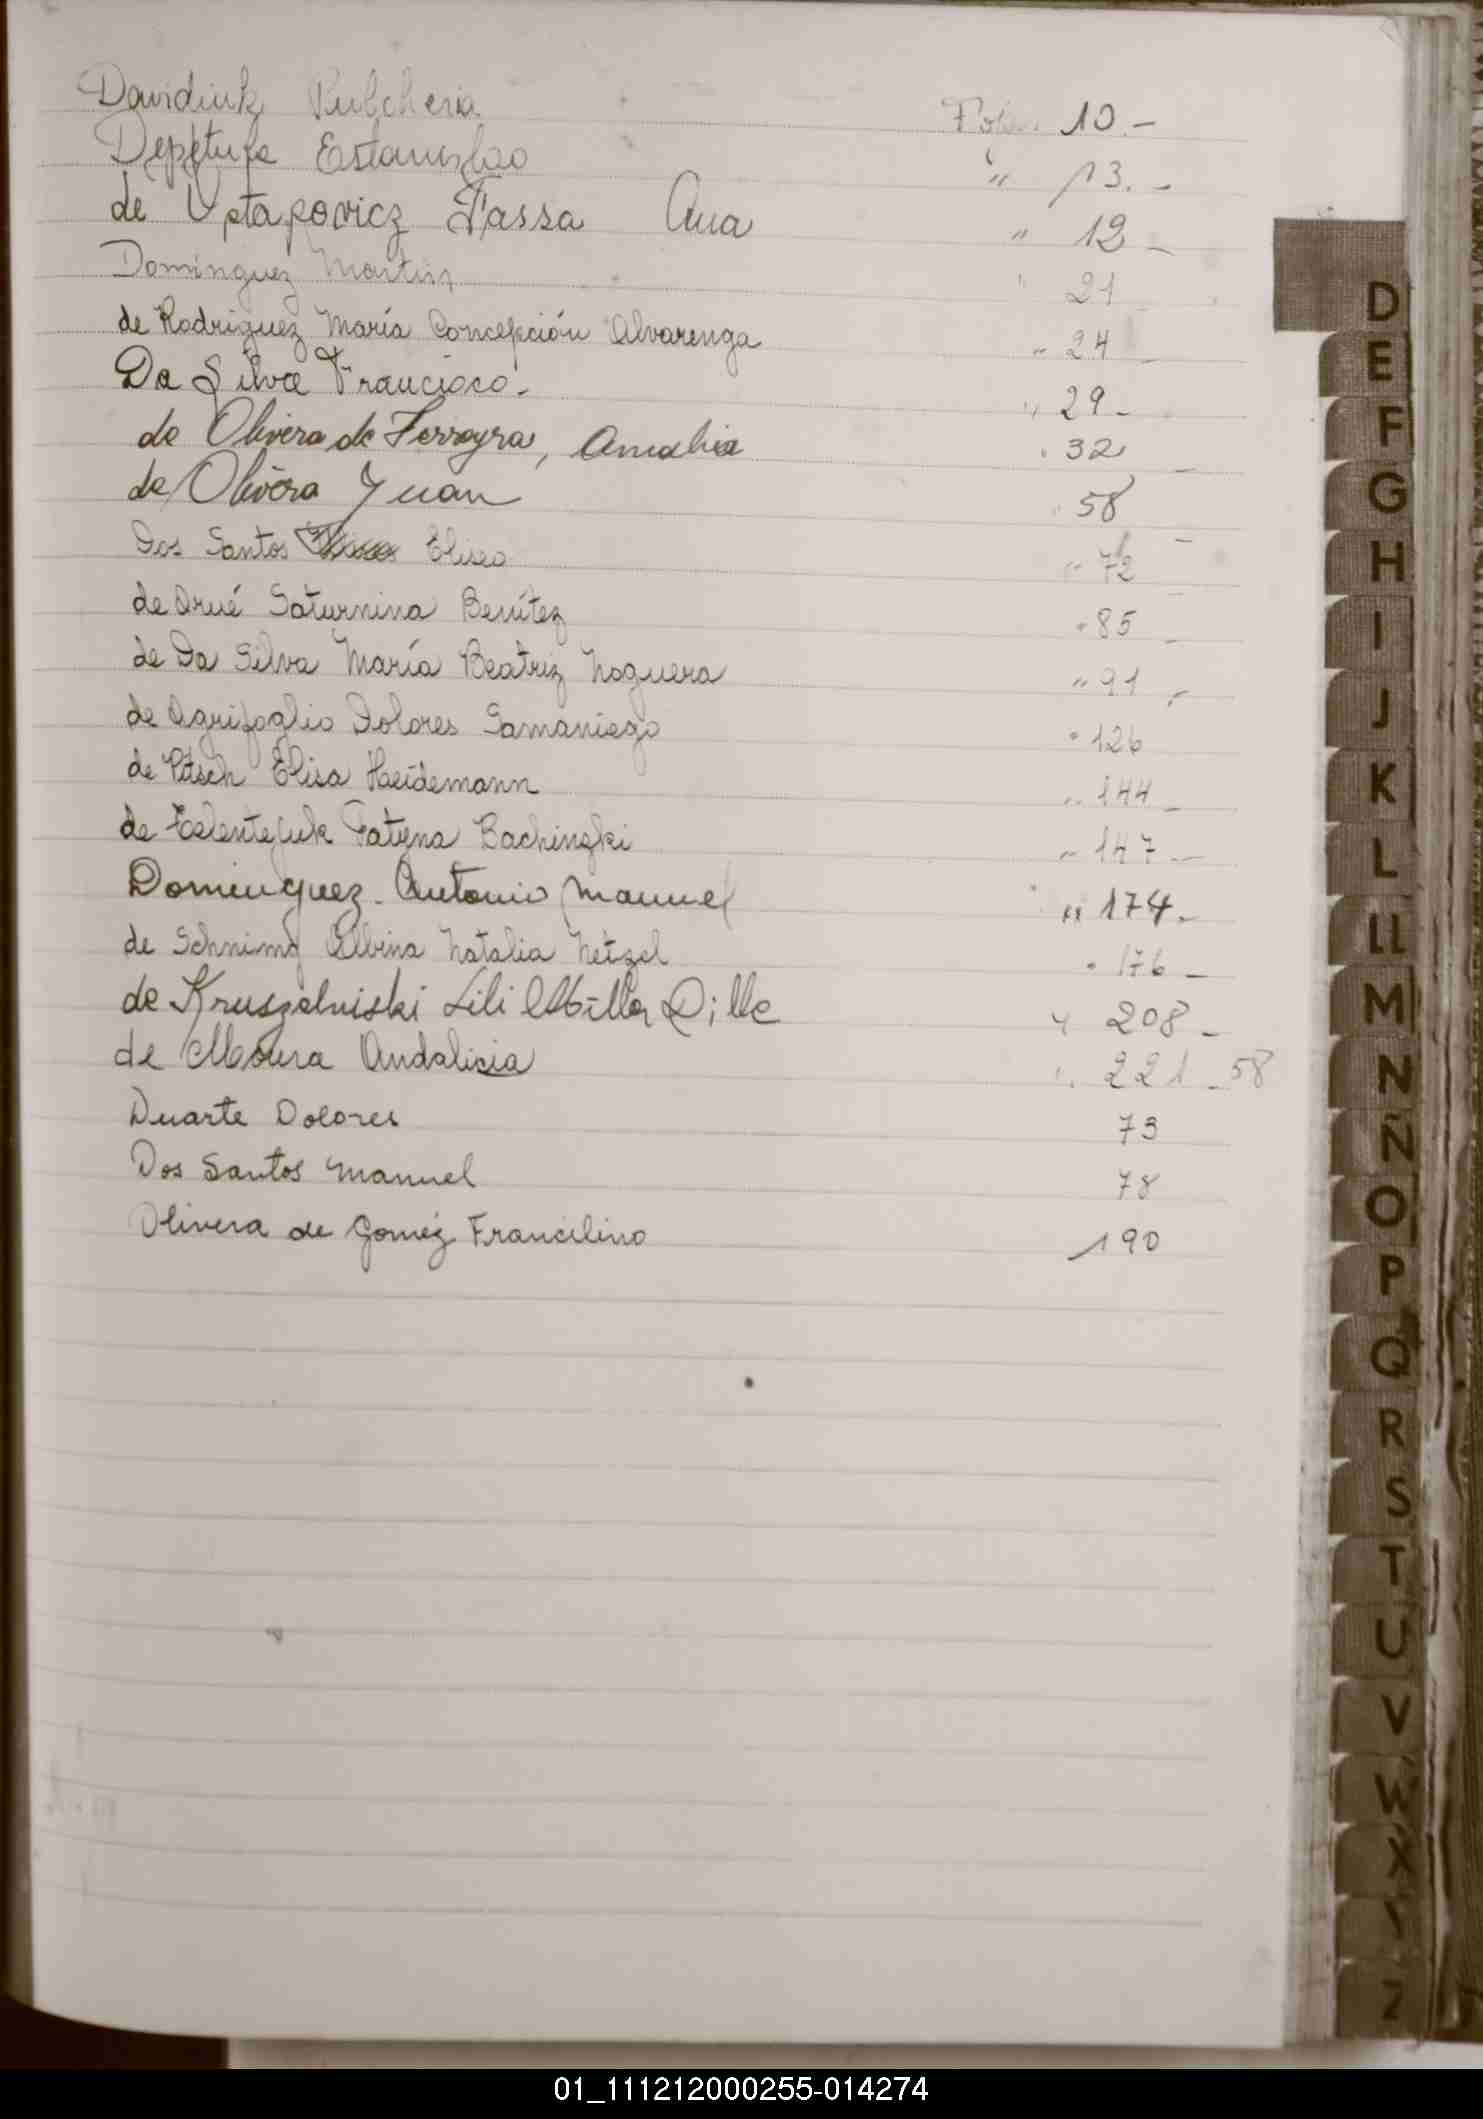 Davidiuk Pulcheria Fol. 10.-
Estanislao " 13.-
de Ostapovicz Tassa Ana " 12 -
Dominguez Martin " 21
de Rodriguez María Concepción Alvarenga " 24 -
Da Silva Francisco.- " 29 -
de Olivera de Ferreyra, Amalia " 32 -
de Olivera Juan " 58 -
Dos Santos Eliseo " 72
de Orué Saturnina Benítez " 85 -
de Da Silva María Beatriz Noguera " 91 -
de Agrifoglio Dolores Samaniego " 126
de Pitsch Elisa Heidemann " 144 -
de Tatyna Bachinski " 147 -
Dominguez - Antonio Manuel " 174.-
de Albina Natalia Netzel " 176 -
de Kruszelniski Lili Milla Dille " 208 -
de Moura Andalicia " 221 - 58
Duarte Dolores 73
Dos Santos Manuel 78
Olivera de Goméz Francilino 190
D
E
F
G
H
I
J
K
L
LL
M
N
Ñ
O
P
Q
R
S
T
U
V
W
X
Y
Z
01_111212000255-014274